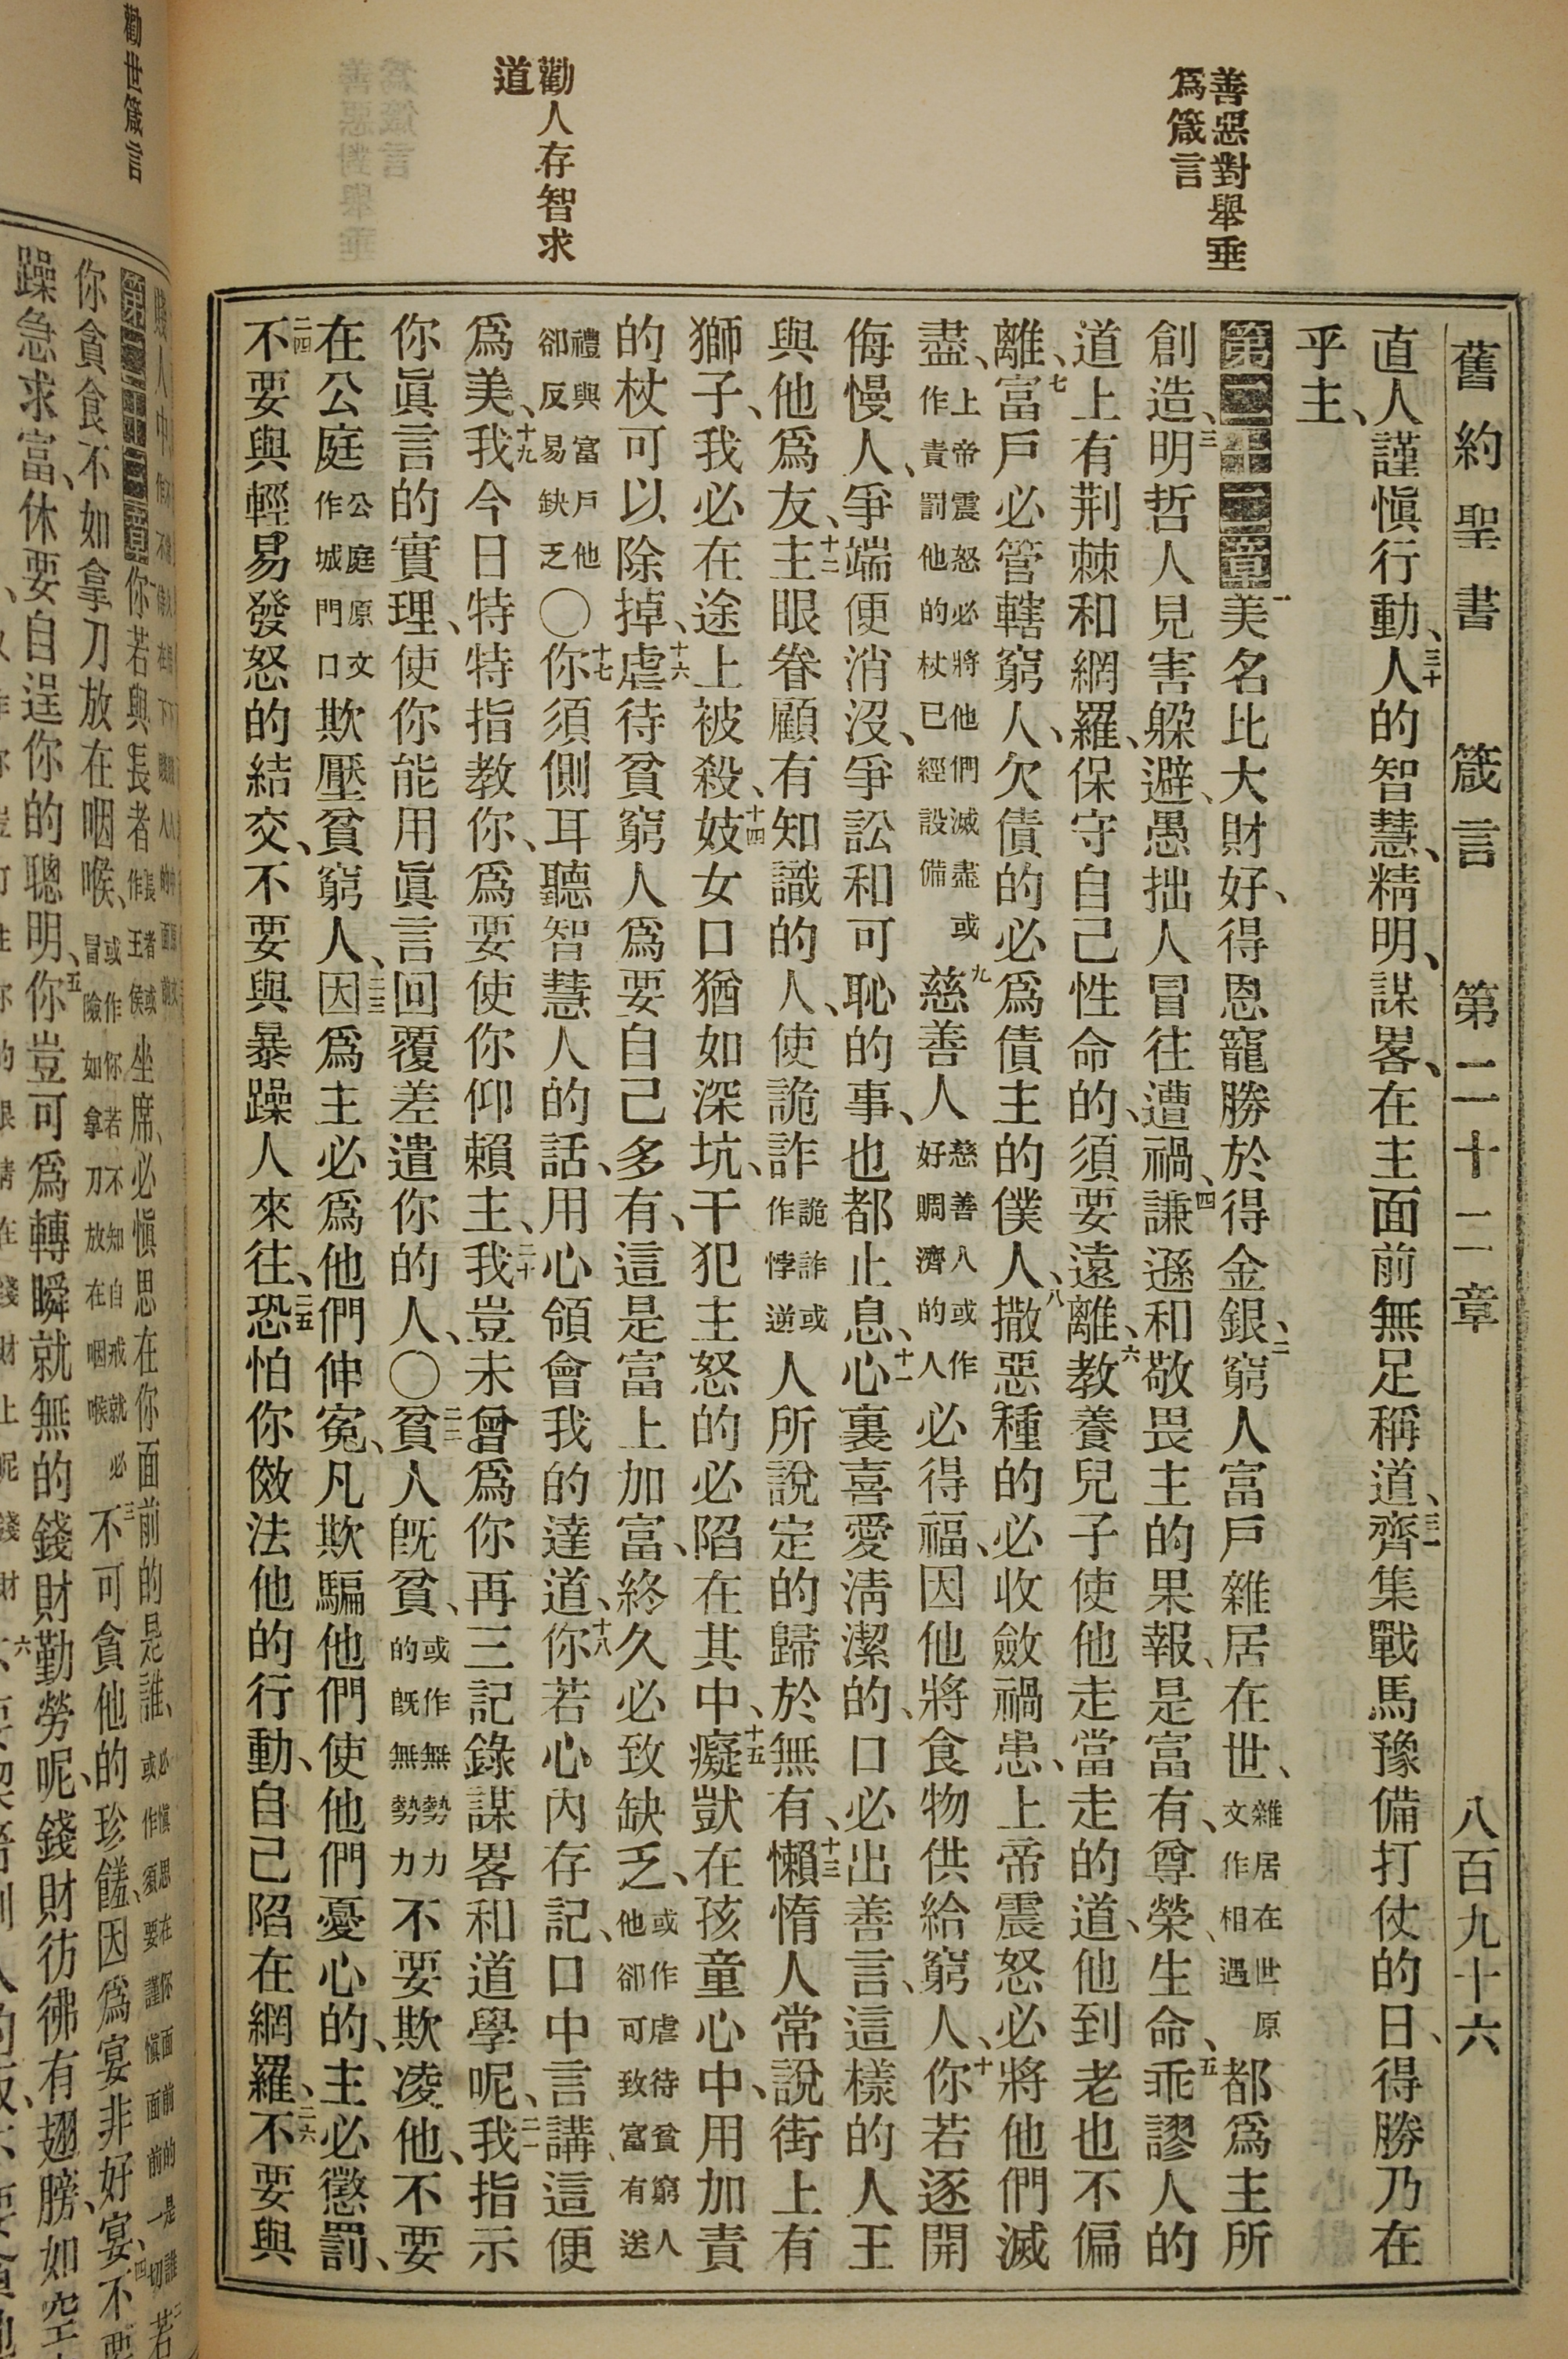 舊約聖書 箴言 第二十二章 八百九十六
善惡對舉垂
爲箴言
勸人存智求
道
直人謹愼行動、三十人的智慧、精明、謀畧、在主面前無足稱道、三一齊集戰馬豫備打仗的日、得勝乃在
乎主、
第二十二章一美名比大財好、得恩寵勝於得金銀、二窮人富戶雜居在世、雜居在世原文作相遇都爲主所
創造、三明哲人見害躱避、愚拙人冒往遭禍、四謙遜和敬畏主的果報、是富有、尊榮、生命、五乖謬人的
道上有荆棘和網羅、保守自己性命的、須要遠離、六教養兒子使他走當走的道、他到老也不偏
離、七富戶必管轄窮人、欠債的必爲債主的僕人、八撒惡種的必收斂禍患、上帝震怒必將他們滅
盡、上帝震怒必將他們滅盡或作責罰他的杖已經設備九慈善人慈善人或作好賙濟的人必得福、因他將食物供給窮人、十你若逐開
侮慢人、爭端便消沒、爭訟和可恥的事、也都止息、十一心裏喜愛淸潔的、口必出善言、這樣的人王
與他爲友、十二主眼眷顧有知識的人、使詭詐詭詐或作悖逆人所說定的歸於無有、十三懶惰人常說街上有
獅子、我必在途上被殺、十四妓女口猶如深坑、干犯主怒的必陷在其中、十五癡獃在孩童心中、用加責
的杖可以除掉、十六虐待貧窮人爲要自己多有、這是富上加富、終久必致缺乏、或作虐待貧窮人他卻可致富有送
禮與富戶他卻反易缺乏〇十七你須側耳聽智慧人的話、用心領會我的達道、十八你若心內存記、口中言講、這便
爲美、十九我今日特特指教你、爲要使你仰賴主、二十我豈未曾爲你再三記錄謀畧和道學呢、二一我指示
你眞言的實理、使你能用眞言回覆差遣你的人、〇二二貧人旣貧、或作無勢力的旣無勢力不要欺凌他、不要
在公庭公庭原文作城門口欺壓貧窮人、二三因爲主必爲他們伸寃、凡欺騙他們使他們憂心的、主必懲罰、
二四不要與輕易發怒的結交、不要與暴躁人來往、二五恐怕你傚法他的行動、自己陷在網羅、二六不要與
勸世箴言
你若與長者長者或作王侯坐席、必愼思在你面前的是誰、
你貪食不如拿刀放在咽喉、或作你若不知自戒就必冒險如拿刀放在咽喉三不可貪他的珍饈、因爲宴非好宴、四不要
躁急求富、休要自逞你的聰明、五你豈可爲轉瞬就無的錢財勤勞呢、錢財彷彿有翅膀、如空